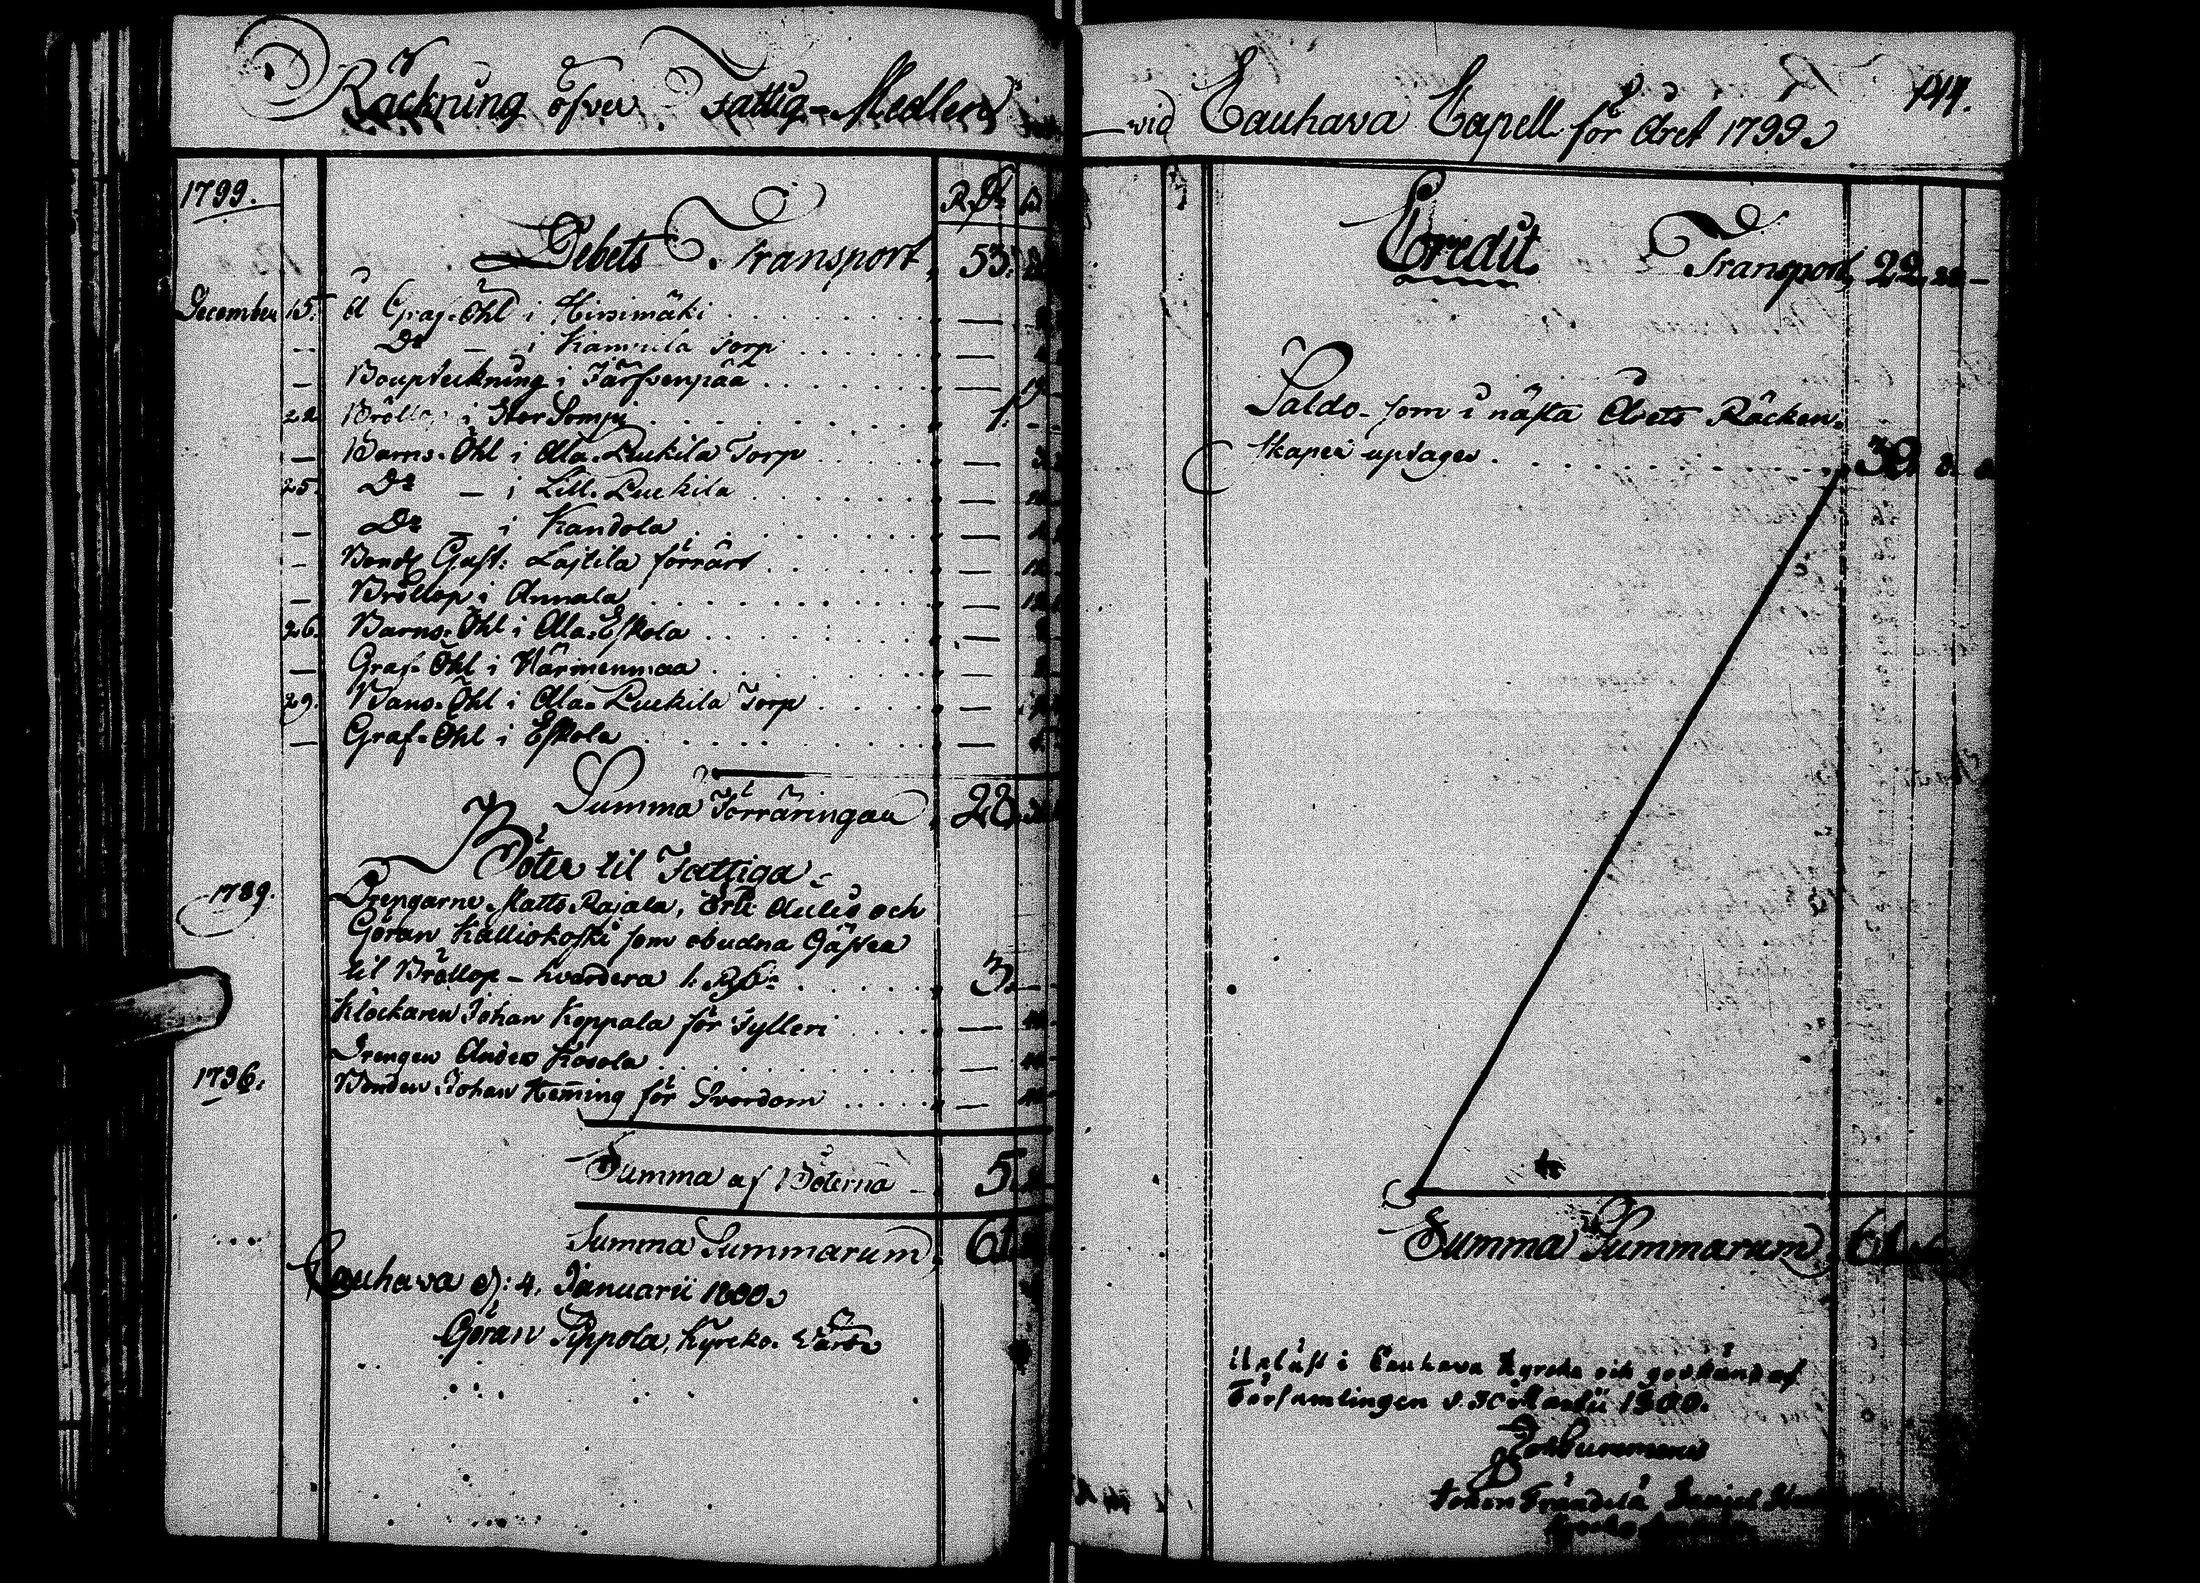 Räckning öfver Fattig-Medlen
1799.
R.dr
Debets Transport, 53.
December 15. A Graf-Öhl i Hirsimäki
Do — i Torp
— Boupteckning i Järfvenpää
22. Bröllop i Stor Sompi 1. -
— Barns-Öhl i Ala-Luckila Torp
25. Do — i Lill-Luckila
— Do — i Kandola
— Bond. Gust: Lastila förrärt 12
— Bröllop i Annala
26. Barns-Öhl i Ala-Eskola
— Graf-Öhl i Härmenmaa
29. Barns-Öhl i Ala-Luckila Torp
— Graf-Öhl i Eskola
Summa Förräringar, 28.
Böter til Fattiga
1789. Drengarne Matts Rajala, Eric Aulis och
Göran Kalliokoski som obudna Gäster
til Bröllop - hvardera 1. 3. —
Klockaren Johan Koppala för Fylleri
Drengen Anders Kosola
1796. Bonden Johan Heming för Svordom
Summa af Böterna 5.
Summa Summarum, 61.
Cauhava d: 4. Januarii 1800.
Göran Pippola, Kyrko-Värd
— vid Cauhava Capell för Året 1799.
Credit Transport, 22. —
Saldo som i nästa Årets Räcken-
skaper uptages 39.
Summa Summarum, 61
Upläst i Cauhava Kyrcka och godkänd af
Församlingen d. 30 Martii 1800.
Johan Daniel